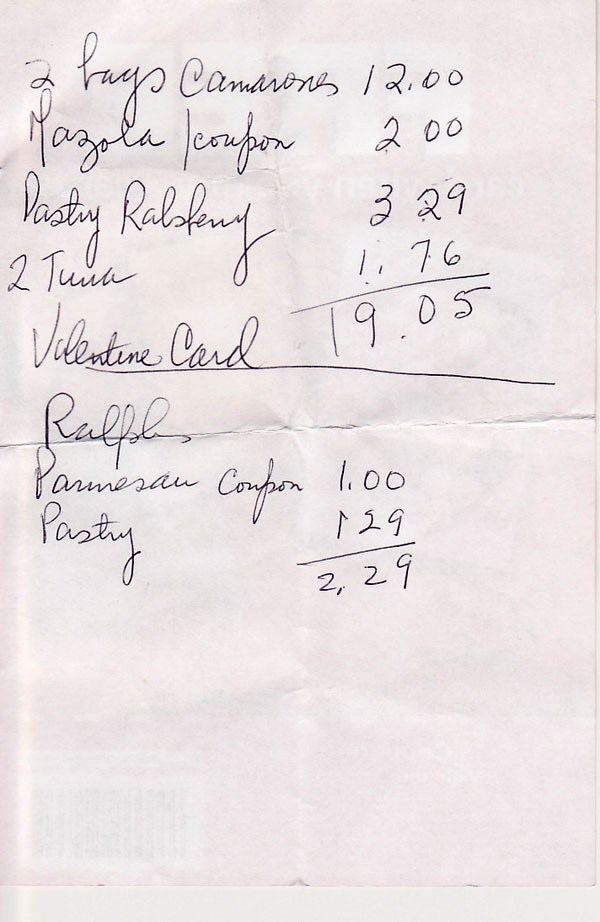 2 bags Camarones 12.00
Mazola 1 coupon 2 00
Pastry Rasberry 3 29
2 Tuna 1.76
19.05
Valentine Card
Ralphs
Parmesan coupon 1.00
Pastry 1 29
2.29